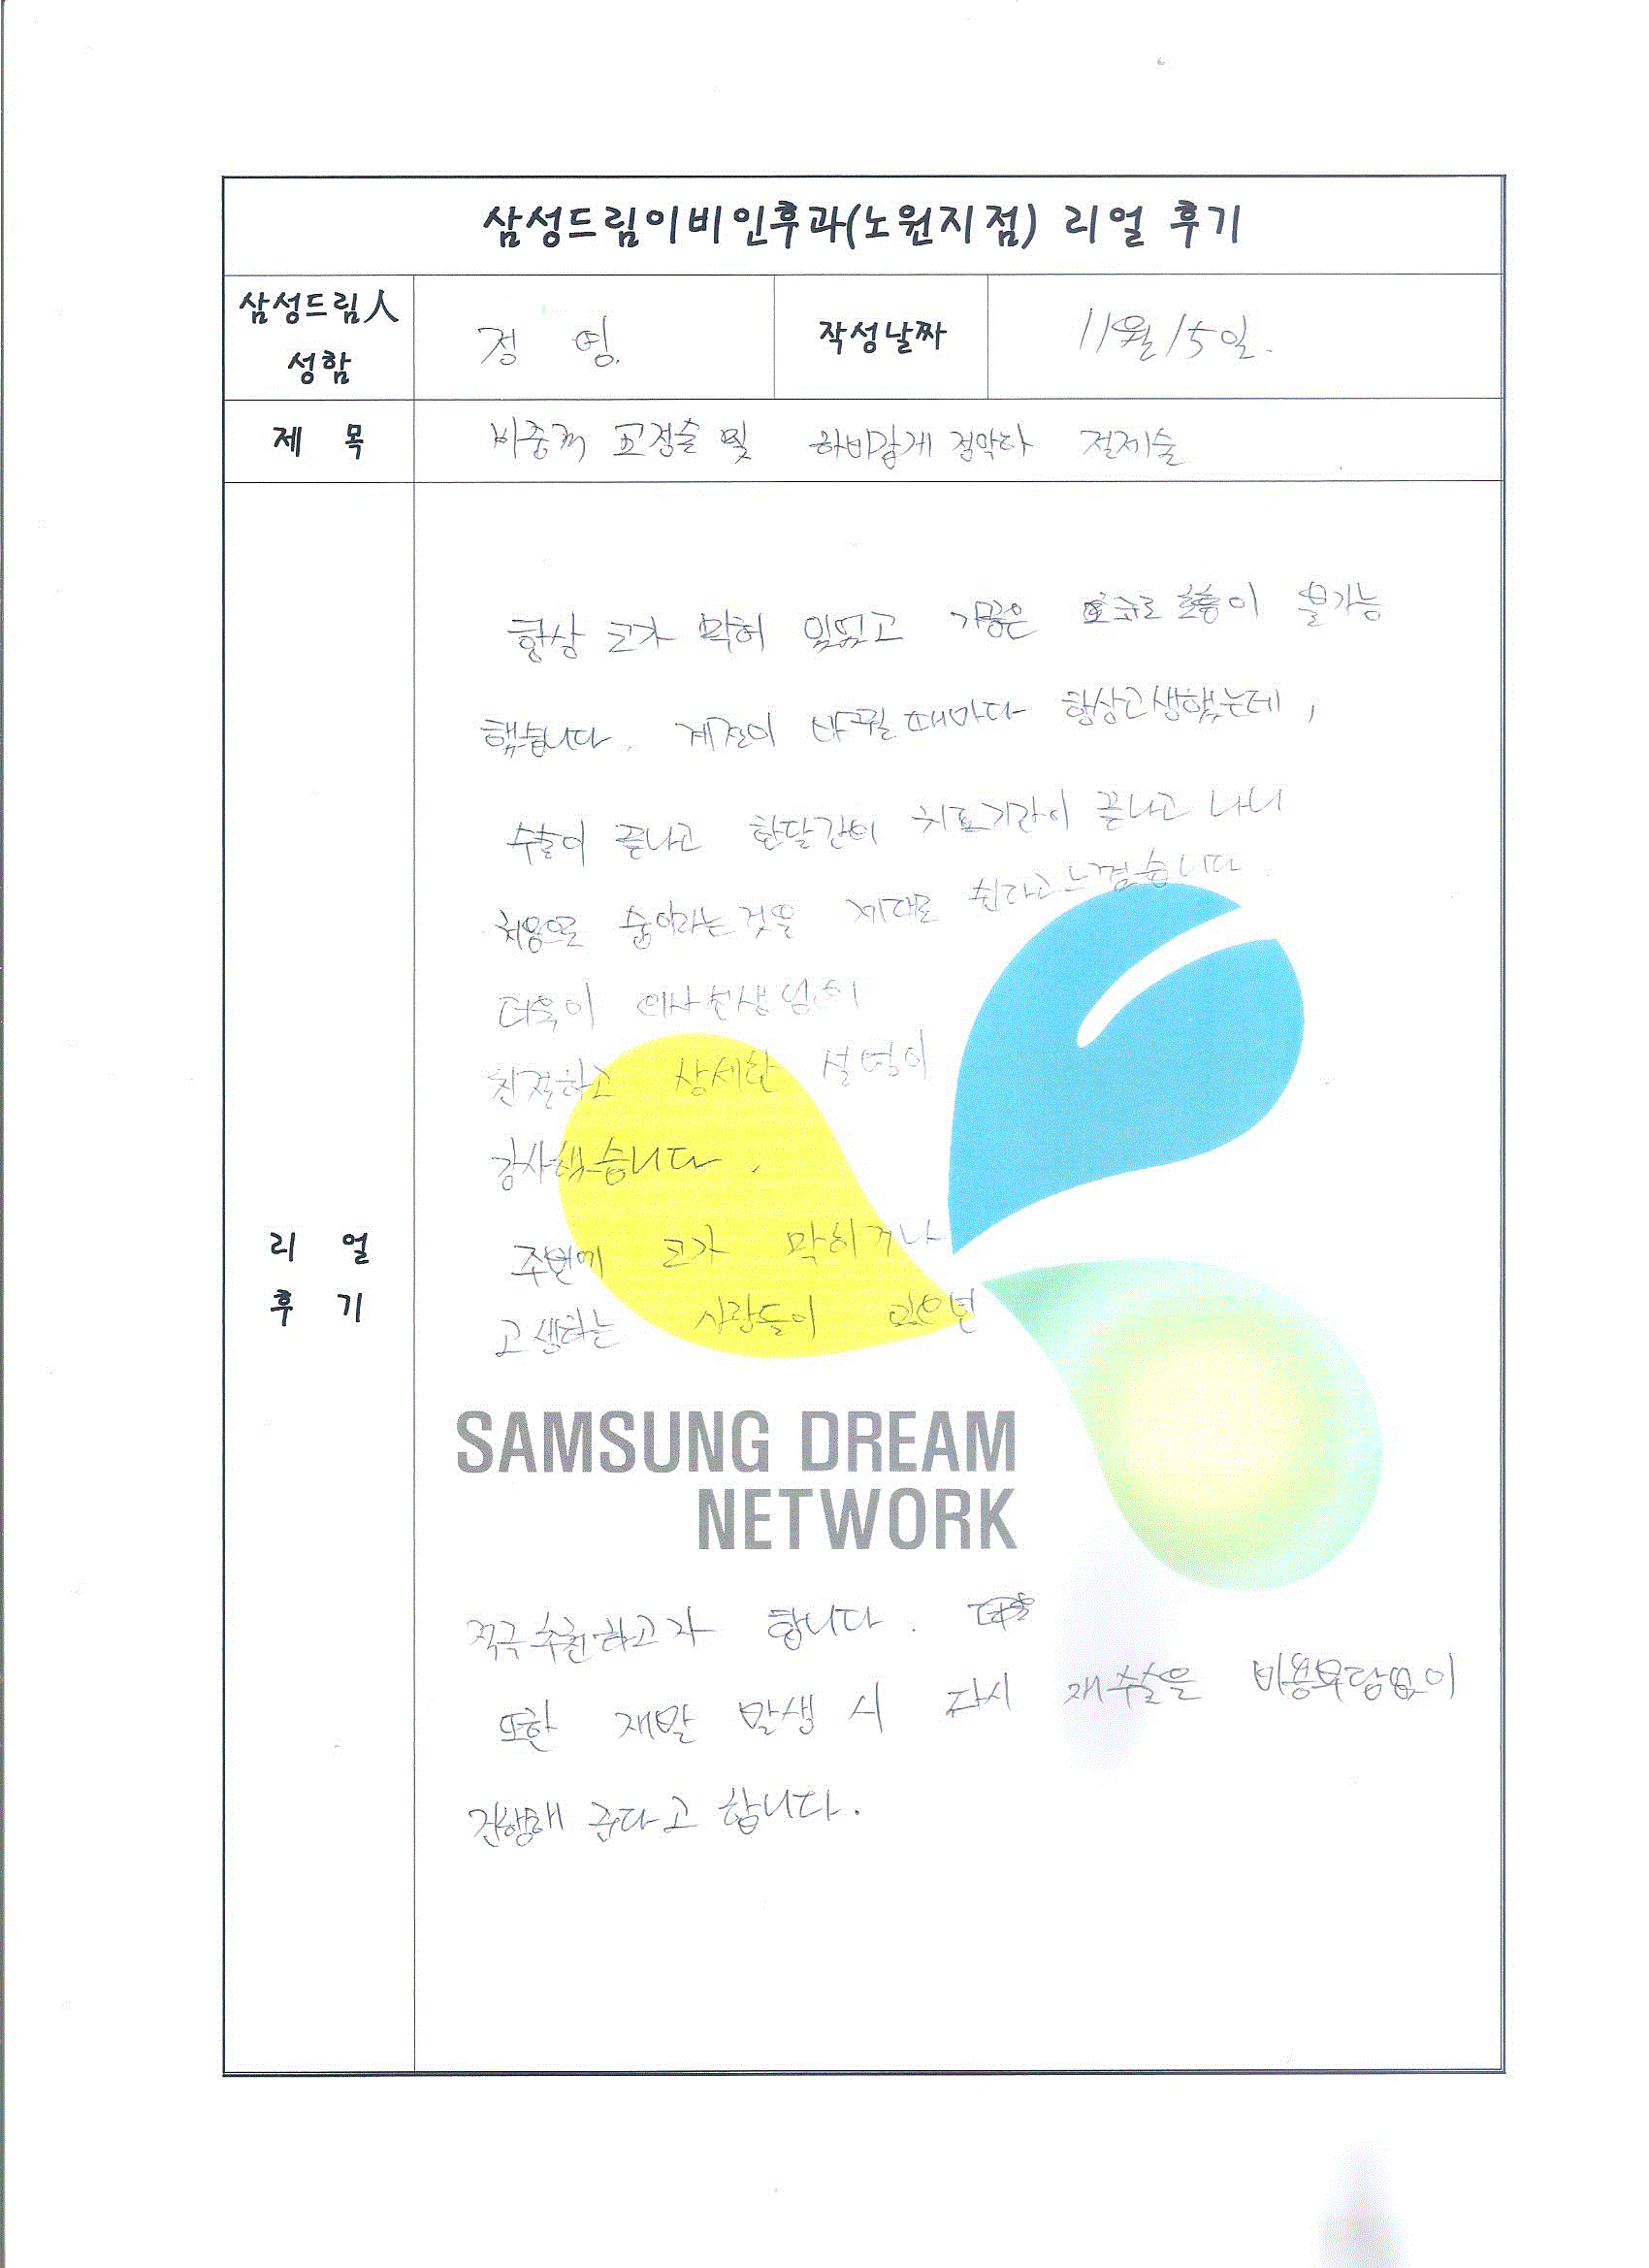 삼성드림이비인후과(노원지점) 리얼 후기
삼성드림人
성함
정 영
작성날짜
11월 15일.
제 목
비중격 교정술 및 하비갑개 점막하 절제술
리 얼
후 기
항상 코가 막혀 있었고 코로 호흡이 불가능
했습니다. 계절이 바뀔때마다 항상고생했는데,
수술이 끝나고 한달간의 치료기간이 끝나고 나니
처음으로 숨이라는것을 제대로 쉰다고느꼈습니다.
더욱이 의사선생님의
친절하고 상세한 설명이
감사했습니다.
주변에 코가 막히거나
고생하는 사람들이 있으면
SAMSUNG DREAM
NETWORK
적극추천하고자 합니다.
또한 재발 발생 시 다시 재수술을 비용부담없이
진행해 준다고 합니다.